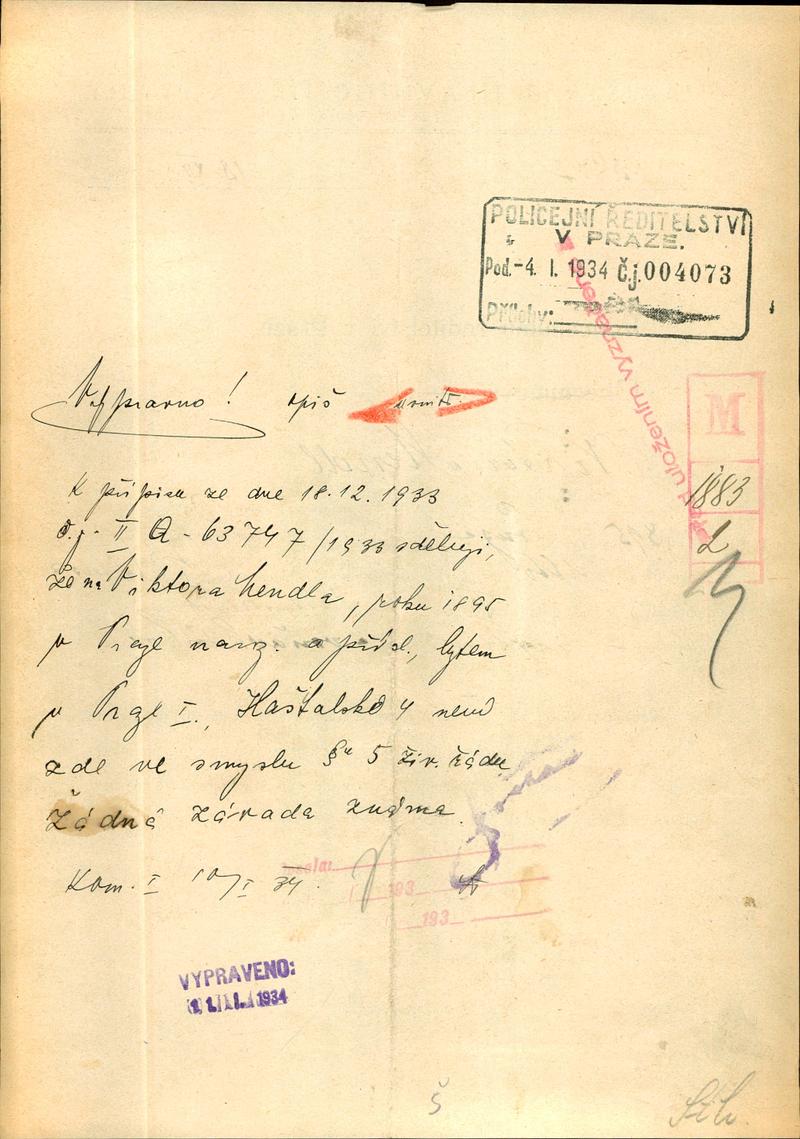 POLICEJNÍ ŘEDITELSTVÍ
V PRAZE.
Pod. -4. I. 1934 Č.j. 004073
Přílohy:
před uložením vyznačen
M
1883
2
Vypraveno! opis uvnitř.
K přípisu ze dne 18.12.1933
č.j. II A - 63747/1933 sděluji,
že na Viktora Mendla, roku 1895
v Praze naroz. a přísl., bytem
v Praze I., Haštalská 4 není
zde ve smyslu §u 5 živ. řádu
žádná závada známa.
Kom. I 10/I 34.
193
193
VYPRAVENO:
1934
Š